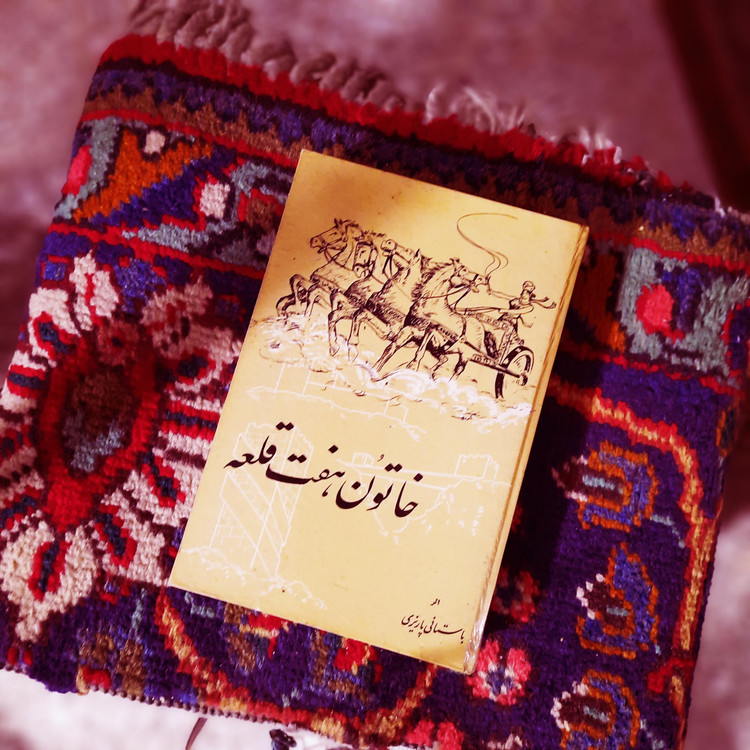 خاتون هفت قلعه
اثر
باستانی پاریزی